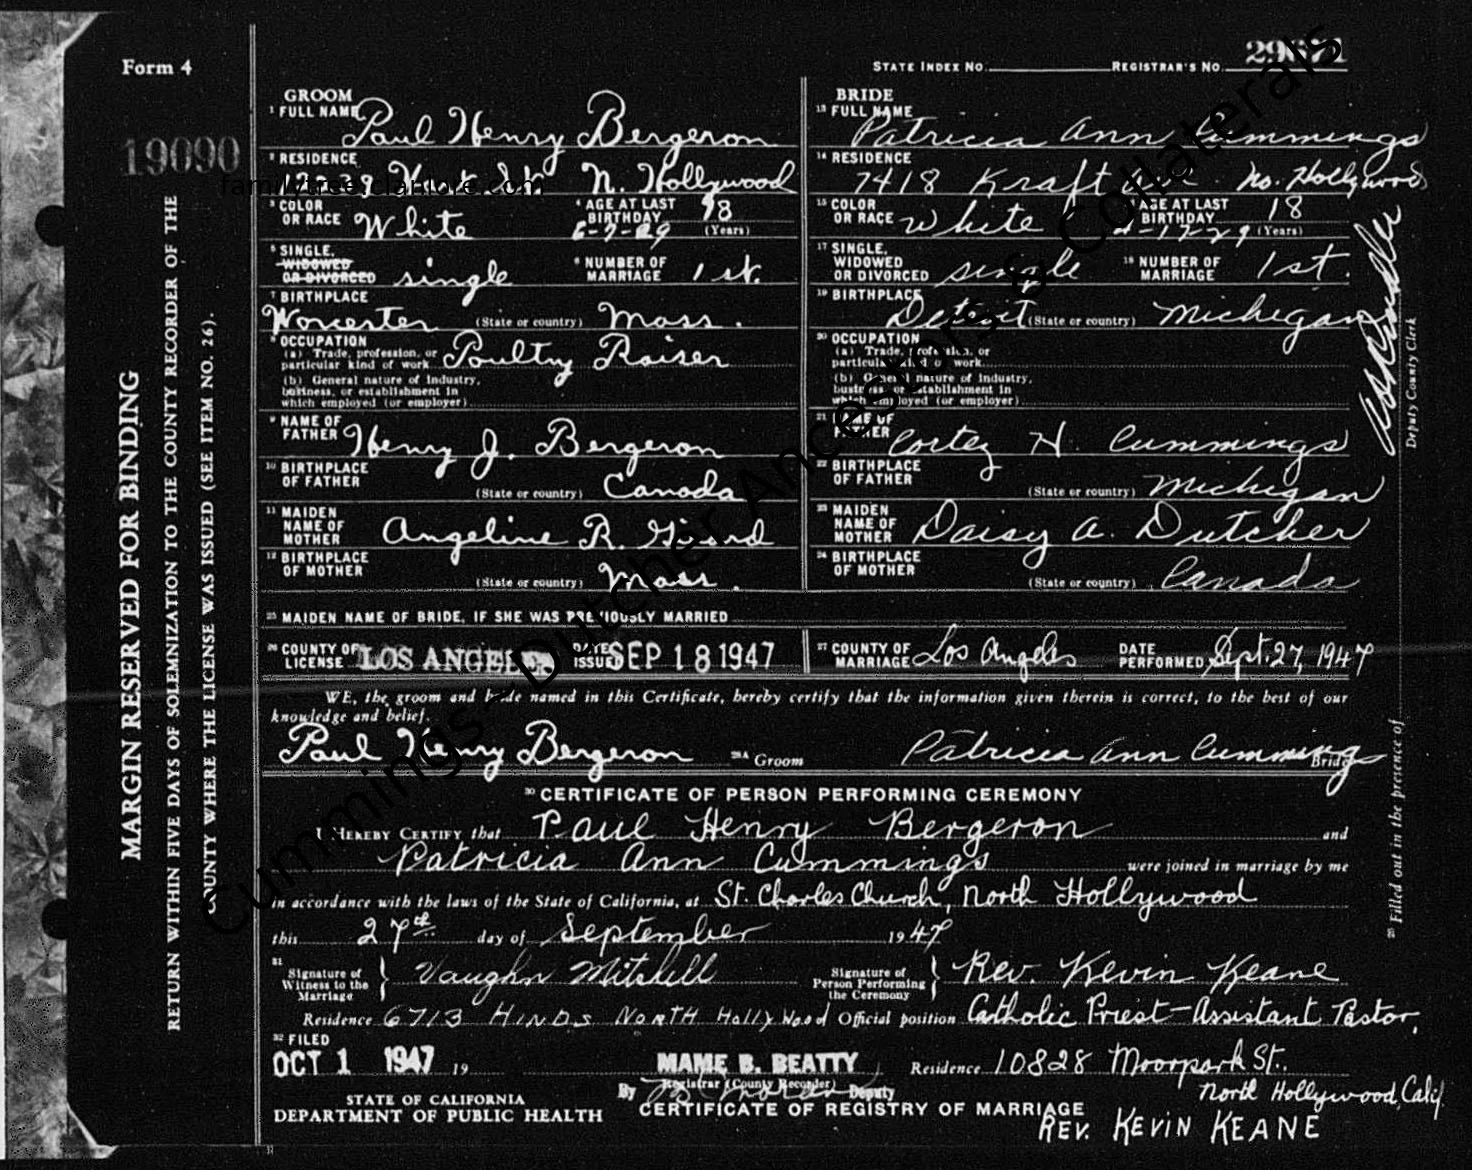 Form 4
STATE INDEX No. REGISTRAR'S No. 29671
19090
MARGIN RESERVED FOR BINDING
RETURN WITHIN FIVE DAYS OF SOLEMNIZATION TO THE COUNTY RECORDER OF THE
COUNTY WHERE THE LICENSE WAS ISSUED (SEE ITEM NO. 26).
GROOM
1 FULL NAME Paul Henry Bergeron
2 RESIDENCE N. Hollywood
familytree.clanlore.com
3 COLOR OR RACE White 4 AGE AT LAST BIRTHDAY 18 (Years)
6-7-29
5 SINGLE, WIDOWED OR DIVORCED single 6 NUMBER OF MARRIAGE 1st.
7 BIRTHPLACE Worcester (State or country) Mass.
8 OCCUPATION
(a) Trade, profession, or particular kind of work Poultry Raiser
(b) General nature of industry, business, or establishment in which employed (or employer)
9 NAME OF FATHER Henry J. Bergeron
10 BIRTHPLACE OF FATHER (State or country) Canada
11 MAIDEN NAME OF MOTHER Angeline R. Girard
12 BIRTHPLACE OF MOTHER (State or country) Mass.
BRIDE
13 FULL NAME Patricia Ann Cummings
14 RESIDENCE 7418 Kraft No. Hollywood
15 COLOR OR RACE White AGE AT LAST BIRTHDAY 18 (Years)
17-29
17 SINGLE, WIDOWED OR DIVORCED single 18 NUMBER OF MARRIAGE 1st.
19 BIRTHPLACE Detroit (State or country) Michigan
20 OCCUPATION
(a) Trade, profession, or particular kind of work
(b) General nature of industry, business, or establishment in which employed (or employer)
21 NAME OF FATHER Cortez H. Cummings
22 BIRTHPLACE OF FATHER (State or country) Michigan
23 MAIDEN NAME OF MOTHER Daisy A. Dutcher
24 BIRTHPLACE OF MOTHER (State or country) Canada
Deputy County Clerk
25 MAIDEN NAME OF BRIDE, IF SHE WAS PREVIOUSLY MARRIED
26 COUNTY OF LICENSE LOS ANGELES DATE ISSUED SEP 18 1947
27 COUNTY OF MARRIAGE Los Angeles DATE PERFORMED Sept. 27, 1947
WE, the groom and bride named in this Certificate, hereby certify that the information given therein is correct, to the best of our
knowledge and belief.
Paul Henry Bergeron 28A Groom Patricia Ann Cummings Bride
29 Filled out in the presence of
30 CERTIFICATE OF PERSON PERFORMING CEREMONY
I HEREBY CERTIFY that Paul Henry Bergeron and
Patricia Ann Cummings were joined in marriage by me
in accordance with the laws of the State of California, at St. Charles Church, North Hollywood
this 27th day of September 1947
31 Signature of Witness to the Marriage Vaughn Mitshell Signature of Person Performing the Ceremony Rev. Kevin Keane
Residence 6713 HINDS NORTH Hollywood Official position Catholic Priest - Assistant Pastor,
32 FILED
OCT 1 1947 19 MAME B. BEATTY Residence 10828 Moorpark St.
Registrar (County Recorder)
By Deputy
North Hollywood, Calif.
STATE OF CALIFORNIA
DEPARTMENT OF PUBLIC HEALTH
CERTIFICATE OF REGISTRY OF MARRIAGE
REV. KEVIN KEANE
Cummings Dutcher Ancestors & Collaterals